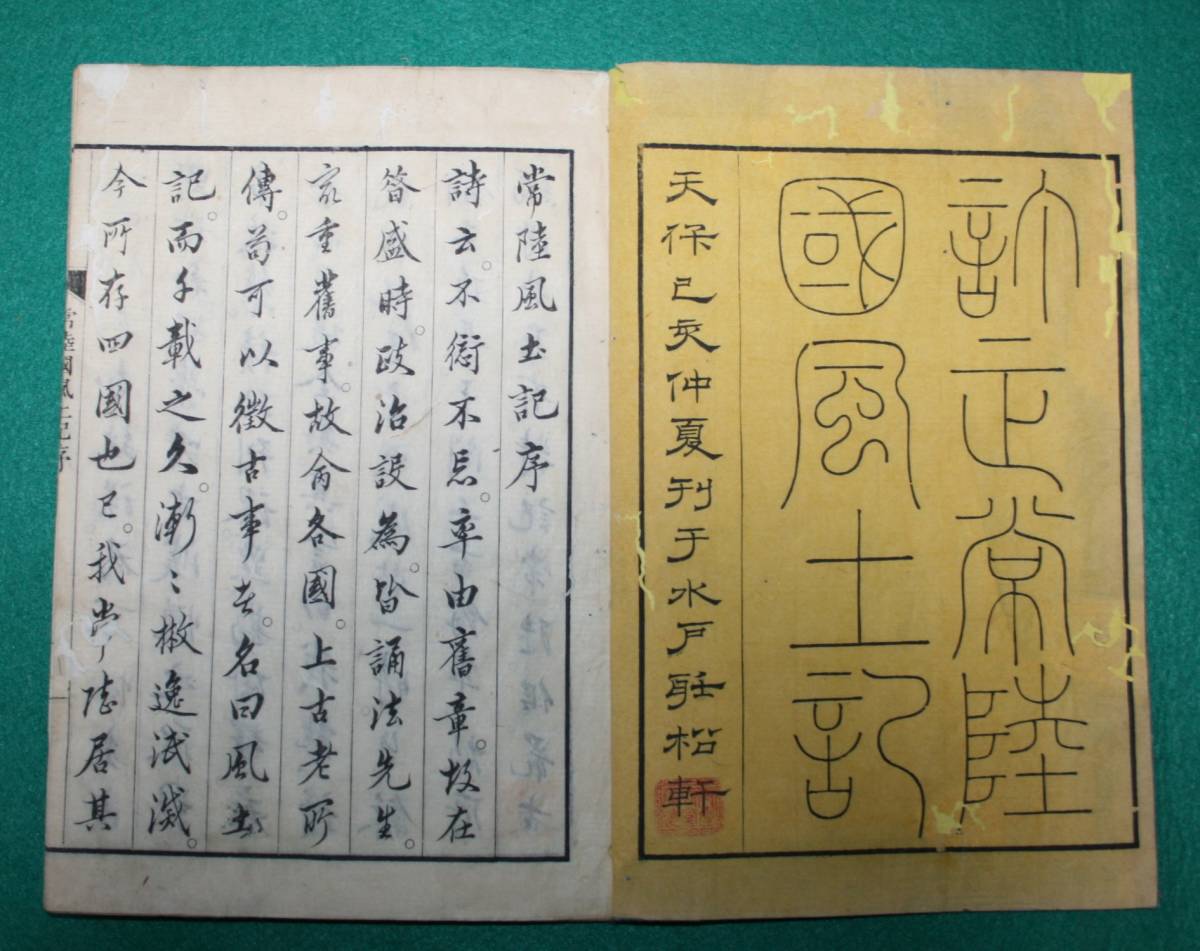 訂正常陸
國風土記
天保己亥仲夏刊于水戸聽松軒
常陸風土記序
詩云。不愆不忘。率由舊章。故在
昔盛時。政治設為。皆誦法先王。
最重舊事。故命各國。上古老所
傳。苟可以徴古事者。名曰風土
記。而千載之久。漸〻散逸泯滅。
今所存四國也已。我常陸居其
常陸國風土記序